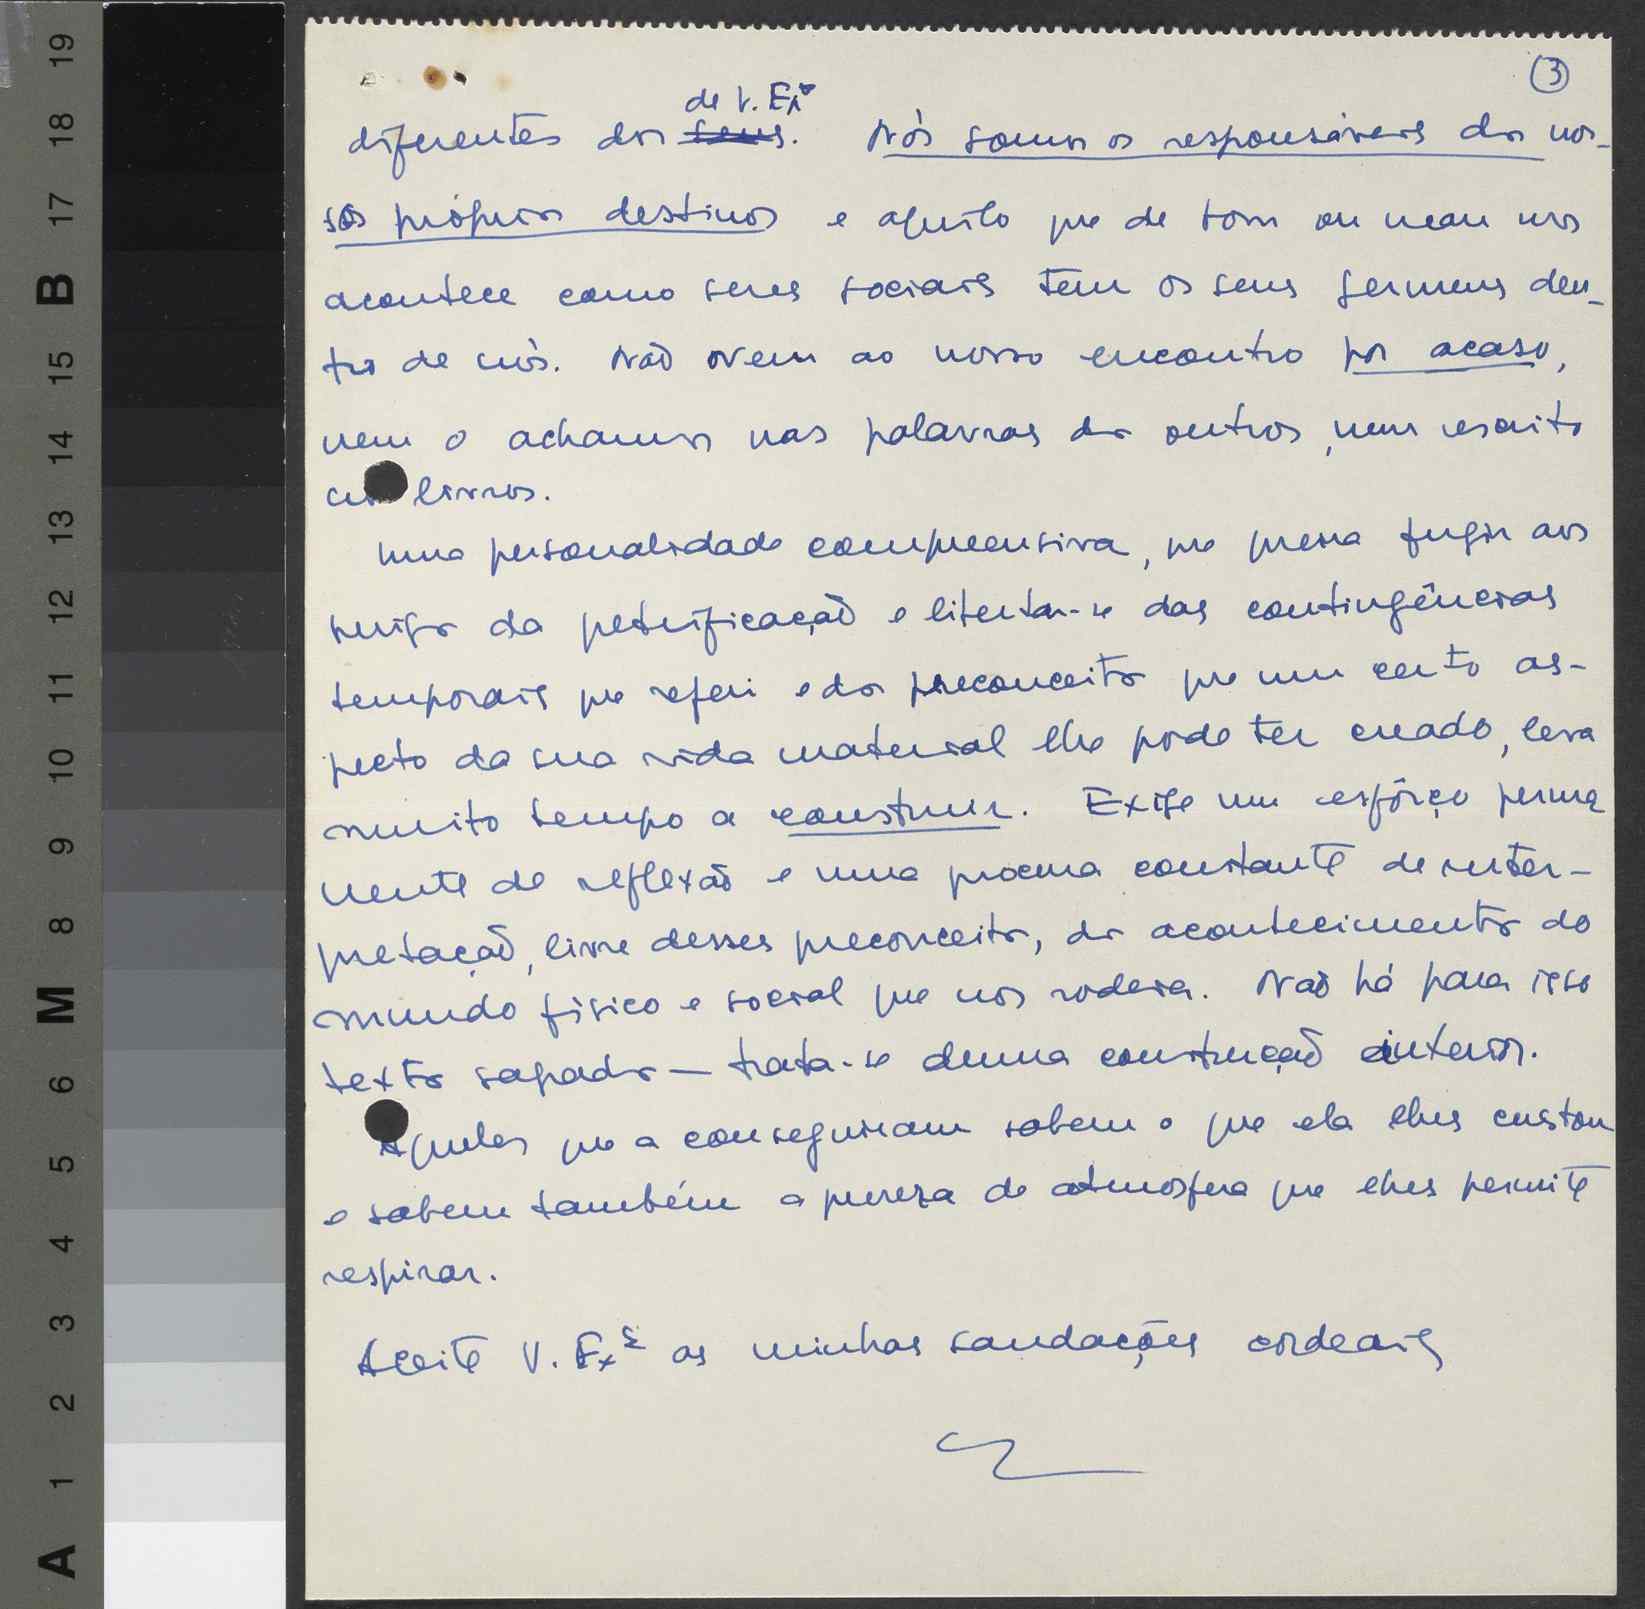 19
18
17
B
15
14
13
12
11
10
9
8
M
6
5
4
3
2
1
A
3
de V. Exª
diferentes dos seus. Nós somos os responsáveis dos nos-
sos próprios destinos e aquilo que de bom ou mau nos
acontece como seres sociais tem os seus germens den-
tro de nós. Não vem ao nosso encontro por acaso,
nem o achamos nas palavras dos outros, nem escrito
nos livros.
Uma personalidade compreensiva, que possa fugir aos
perigos da petrificação e libertar-se das contingências
temporais que referi e dos preconceitos que um certo as-
pecto da sua vida material lhe pode ter criado, leva
muito tempo a construir. Exige um esfôrço perma
nente de reflexão e uma procura constante de inter-
pretação, livre desses preconceitos, dos acontecimentos do
mundo físico e social que nos rodeia. Não há para isso
textos sagrados — trata-se duma construção interior.
Aqueles que a conseguiram sabem o que ela lhes custou
e sabem também a pureza de atmosfera que lhes permite
respirar.
Aceite V. Exª as minhas saudações cordeais